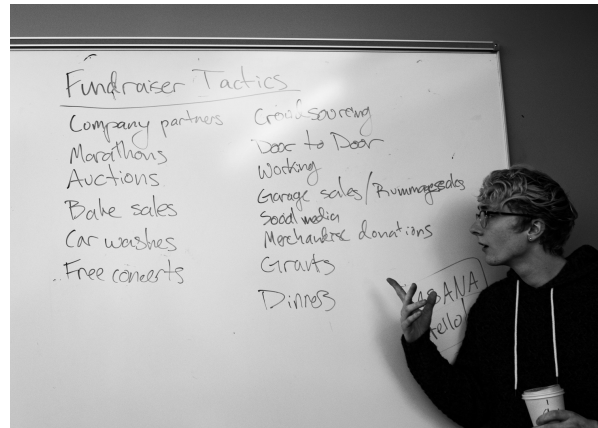 Fundraiser Tactics
Company partners
Marathons
Auctions
Bake sales
Car washes
Free concerts
Crowdsourcing
Door to Door
Working
Garage sales/Rummagesales
Social media
Merchandise donations
Grants
Dinners
ASANA